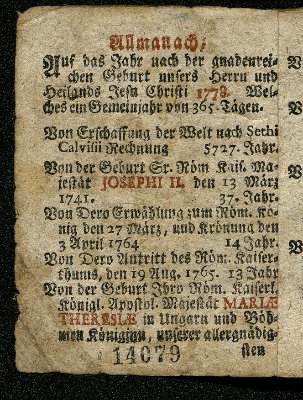 Allmanach,
Auf das Jahr nach der gnadenrei-
chen Geburt unsers Herrn und
Heilands Jesu Christi 1778. Wel-
ches ein Gemeinjahr von 365. Tägen.
Von Erschaffung der Welt nach Sethi
Calvisii Rechnung 5727. Jahr.
Von der Geburt Sr. Röm Kais. Ma-
jestät JOSEPHI II. den 13 März
1741. 37. Jahr.
Von Dero Erwählung zum Röm. Kö-
nig den 27 März, und Krönung den
3 April 1764 14 Jahr.
Von Dero Antritt des Röm. Kaiser-
thums, den 19 Aug. 1765. 13 Jahr
Von der Geburt Ihro Röm. Kaiserl.
Königl. Apostol. Majestät MARIÆ
THERESIÆ in Ungarn und Böh-
men Königinn, unserer allergnädig-
sten
14079